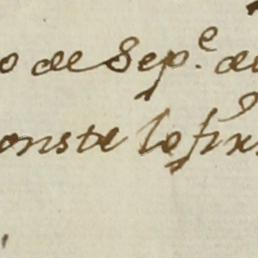 o de Sep.e de
onste lo fir